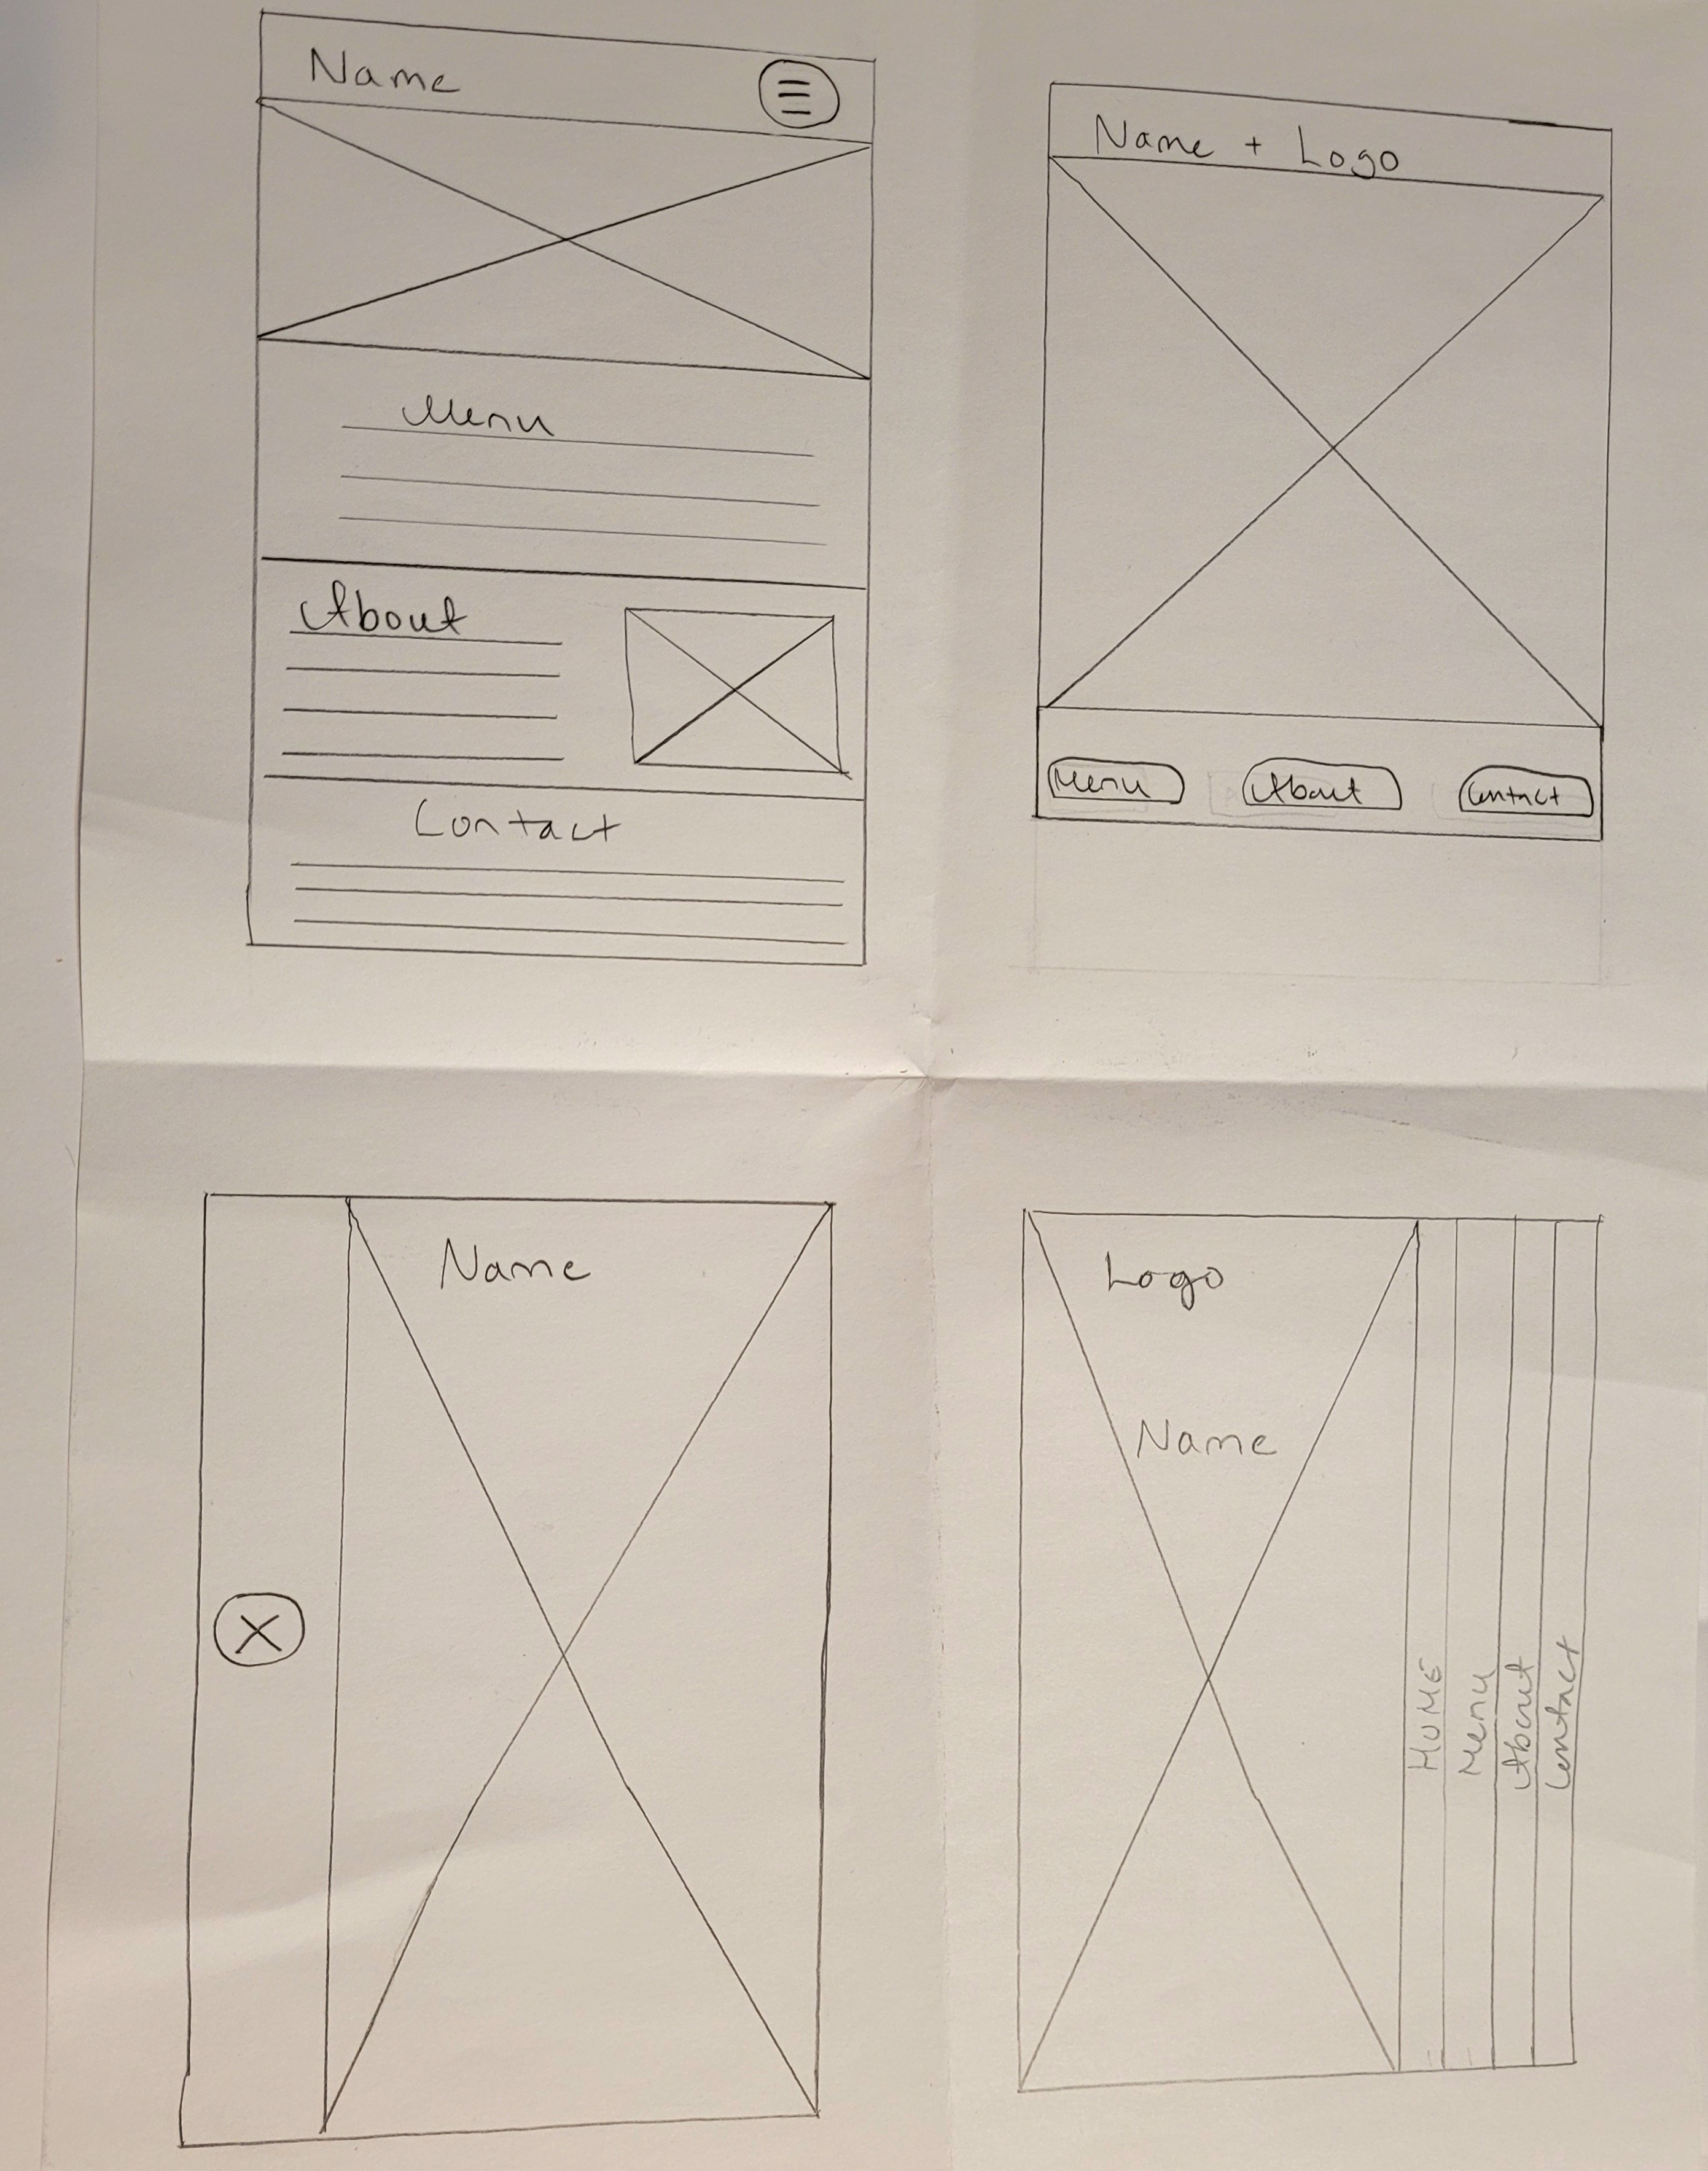 Name
Menu
About
Contact
Name + Logo
Menu About Contact
Name
Logo
Name
HOME
Menu
About
Contact